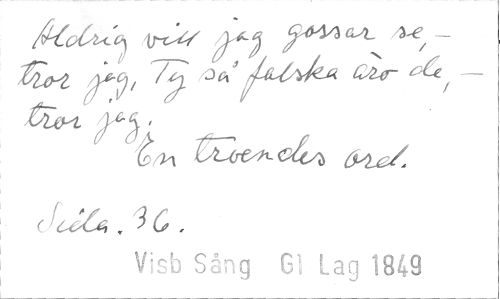 Aldrig vill jag gossar se, –
tror jag, Ty så falska äro de, –
tror jag.
En troendes ord.
Sida. 36.
Visb Sång Gl Lag 1849